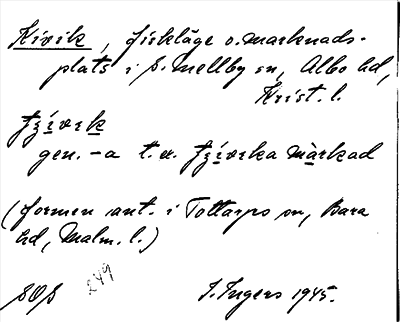 Kivik, fiskläge o. marknads-
plats i S. Mellby sn, Albo hd,
Krist. l.
tʒívɩk
gen. -a t. ex. tʒívɩka màrkad
(formen ant. i Tottarps sn, Bara
hd, Malm. l.)
SOS 249 I. Ingers 1945.